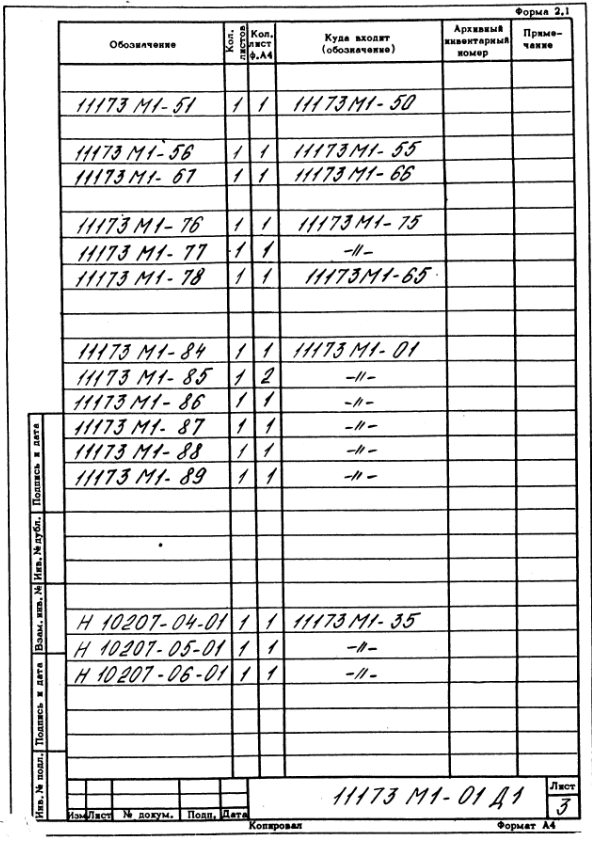 Форма 2.1
Обозначение Кол. листов Кол. лист ф.А4 Куда входит (обозначение) Архивный инвентарный номер Примечание
11173 М1-51 1 1 11173 М1-50
11173 М1-56 1 1 11173 М1-55
11173 М1-67 1 1 11173 М1-66
11173 М1-76 1 1 11173 М1-75
11173 М1-77 1 1 -//-
11173 М1-78 1 1 11173 М1-65
11173 М1-84 1 1 11173 М1-01
11173 М1-85 1 2 -//-
11173 М1-86 1 1 -//-
11173 М1-87 1 1 -//-
11173 М1-88 1 1 -//-
11173 М1-89 1 1 -//-
Н 10207-04-01 1 1 11173 М1-35
Н 10207-05-01 1 1 -//-
Н 10207-06-01 1 1 -//-
Подпись и дата
Инв. № дубл.
Взам. инв. №
Подпись и дата
Инв. № подл.
11173 М1-01 Д1
Лист
3
Изм Лист № докум. Подп. Дата
Копировал Формат А4